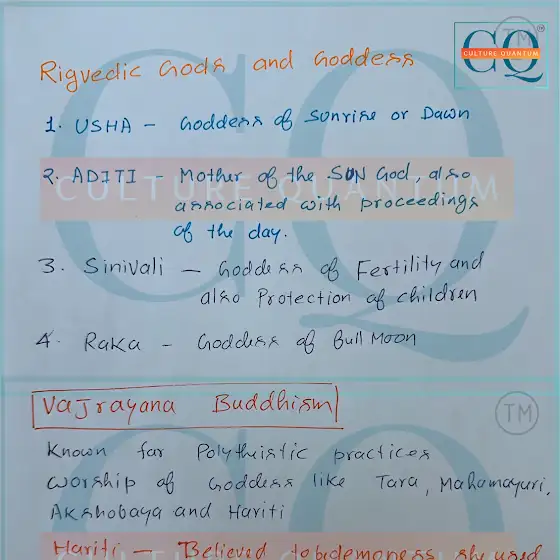 TM
CULTURE QUANTUM
CQ
Rigvedic Gods and Goddess
1. USHA - Goddess of Sunrise or Dawn
2. ADITI - Mother of the SUN God, also
CULTURE QUANTUM
associated with proceedings
of the day.
3. Sinivali - Goddess of Fertility and
also Protection of children
4. Raka - Goddess of Full Moon
Vajrayana Buddhism
TM
Known for Polytheistic practices
worship of Goddess like Tara, Mahamayuri,
Akshobaya and Hariti
Hariti - Believed to be demoness, she used